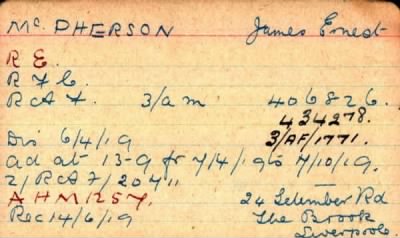 McPHERSON James Ernest
R E.
R F C.
R A F. 3/am 406826.
434278.
Dis 6/4/19 3/AF/1771.
ad at 13-9 fr 7/4/19 to 7/10/19.
2/RAF/20411
AHM1257. 24 Setember Rd
Rec 14/6/19 The Brook
Liverpool